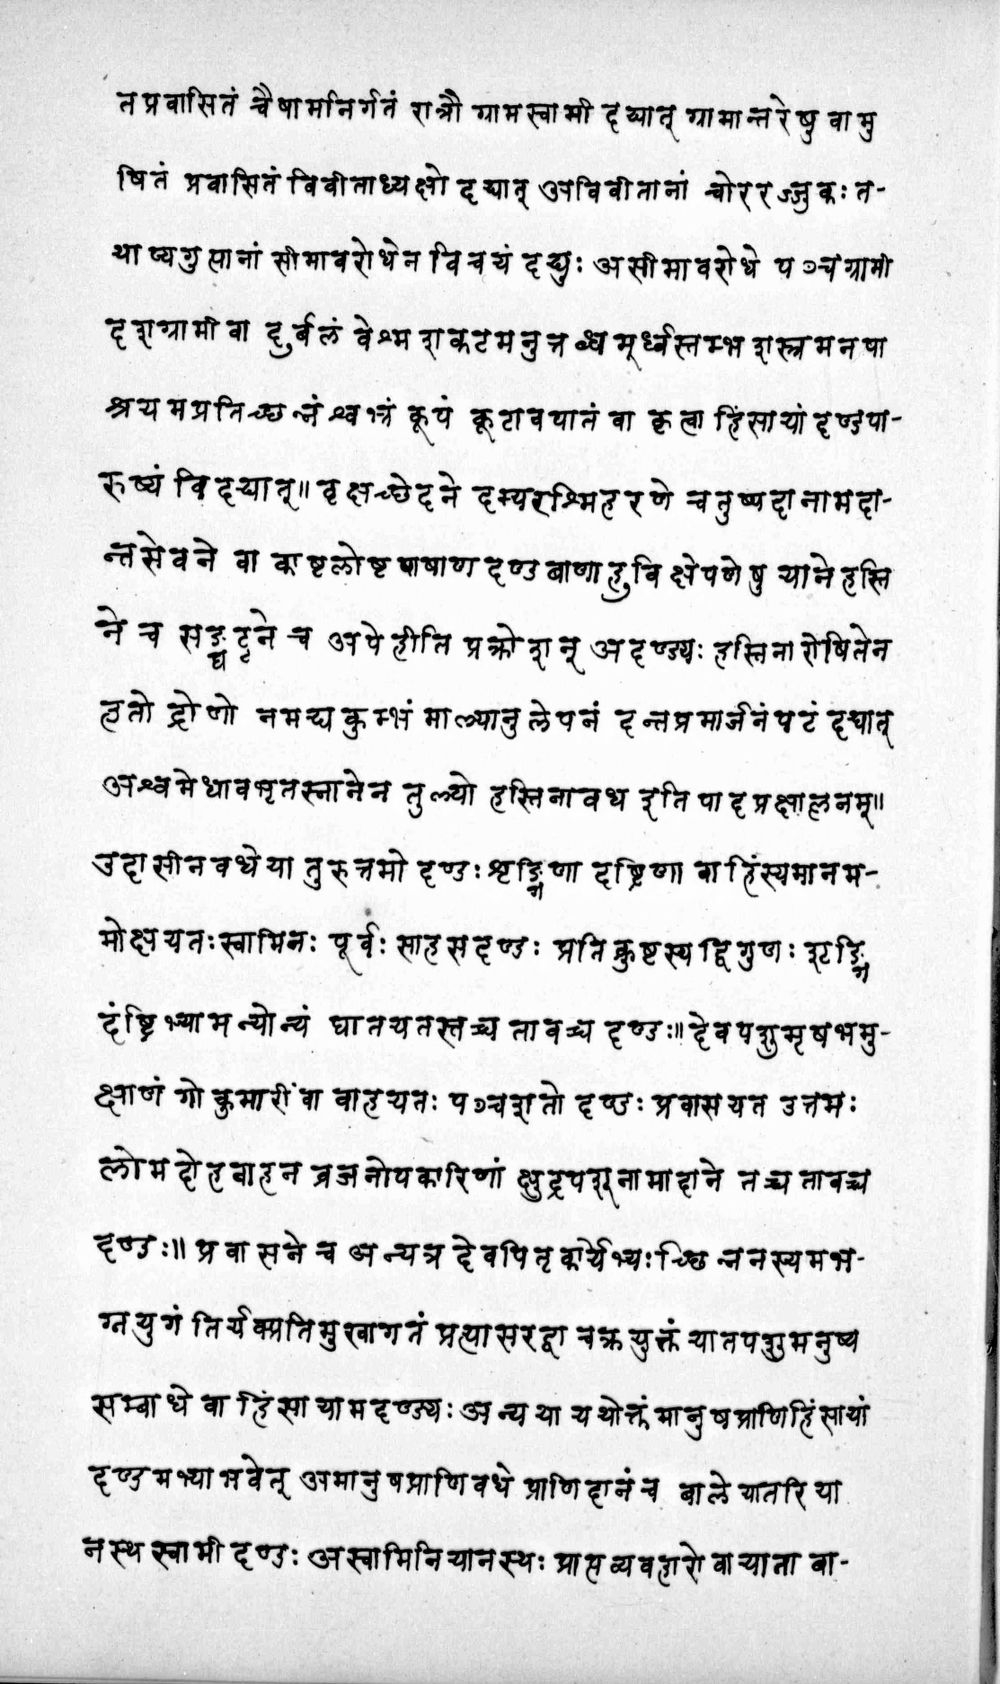 तप्रवासितं चैषामनिर्गतं रात्रौ ग्रामस्वामी दद्यात् ग्रामान्तरेषु वा मु
षितं प्रवासितं विवीताध्यक्षो दद्यात् अविवीतानां चोररज्जुकः त-
थाप्यगुप्तानां सीमावरोधेन विचयं दद्युः असीमावरोधे पञ्चग्रामी
दशग्रामी वा दुर्बलं वेश्म शकटमनुत्तब्धमूर्ध्वस्तम्भ शस्त्रमनपा
श्रयमप्रतिच्छन्नं श्वभ्रं कूपं कूटावपातं वा कृत्वा हिंसायां दण्डपा-
रुष्यं विद्यात्॥ वृक्षच्छेदने दम्यरश्मिहरणे चतुष्पदानामदा-
न्तसेवने वा काष्टलोष्टपाषाण दण्डबाणाहुविक्षेपणेषु याने हस्ति
ने च सङ्घट्टने च अपेहीति प्रक्रोशन् अदण्ड्यः हस्तिना रोषितेन
हतो द्रोणो नमद्यकुम्भं माल्यानुलेपनं दन्तप्रमार्जनं पटं दद्यात्
अश्वमेधावभृतस्नानेन तुल्यो हस्तिनावध इति पादप्रक्षालनम्॥
उदासीनवधे यातुरुत्तमो दण्डः शृङ्गिणा दंष्ट्रिणा वा हिंस्यमानम-
मोक्षयतः स्वामिनः पूर्वः साहसदण्डः प्रतिक्रुष्टस्य द्विगुणः शृङ्गि
दंष्ट्रिभ्यामन्योन्यं घातयतस्तच्च तावच्च दण्डः॥ देवपशुमृषभमु-
क्षाणं गोकुमारीं वा वाहयतः पञ्चशतो दण्डः प्रवासयत उत्तमः
लोमदोहवाहन व्रजनोपकारिणां क्षुद्रपशूनामादाने तच्च तावच्च
दण्डः॥ प्रवासने च अन्यत्र देवपितृकार्येभ्यः च्छिन्ननस्यमभ-
ग्नयुगं तिर्यक्प्रतिमुखागतं प्रत्यासरद्वा चक्रयुक्तं यातपशुमनुष्य
सम्बाधे वा हिंसायामदण्ड्यः अन्यथा यथोक्तं मानुषप्राणिहिंसायां
दण्डमभ्याभवेत् अमानुषप्राणिवधे प्राणिदानं च बाले यातरि या
नस्थ स्वामी दण्डः अस्वामिनि यानस्थः प्राप्तव्यवहारो वा याता बा-